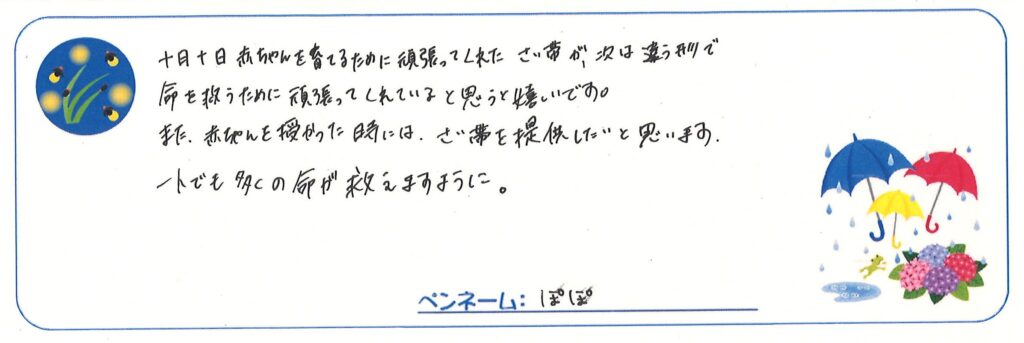 十月十日赤ちゃんを育てるために頑張ってくれたさい帯が、次は違う形で
命を救うために頑張ってくれていると思うと嬉しいです。
また、赤ちゃんを授かった時には、さい帯を提供したいと思います.
一人でも多くの命が救えますように。
ペンネーム: ぽぽ